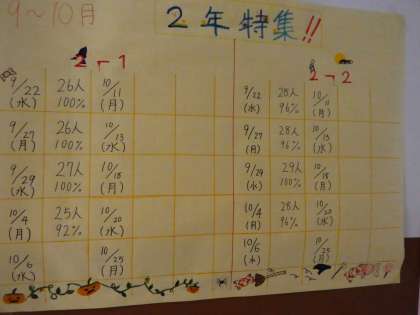 9～10月
2年特集!!
2-1
9/22 (水) 26人 100% 10/11 (月)
9/27 (月) 26人 100% 10/13 (水)
9/29 (水) 27人 100% 10/18 (月)
10/4 (月) 25人 92% 10/20 (水)
10/6 (水) 10/25 (月)
2-2
9/22 (水) 28人 96% 10/11 (月)
9/27 (月) 28人 96% 10/13 (水)
9/29 (水) 29人 100% 10/18 (月)
10/4 (月) 28人 96% 10/20 (水)
10/6 (水) 10/25 (月)